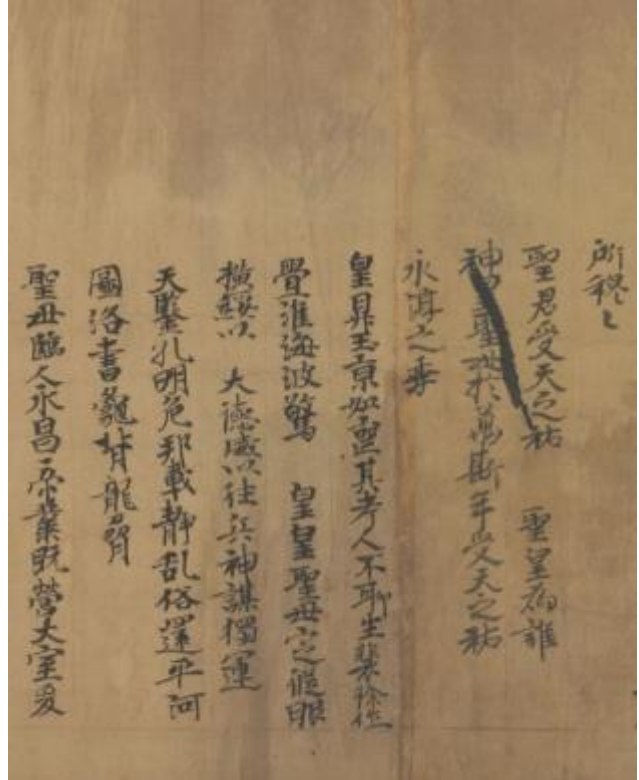 聖君受天之祜　聖皇為誰
神皇聖於萬斯年受天之祜
永淳之季
皇昇玉京如喪其考人不聊生裴徐作
舋淮海波驚　皇皇聖母定
以　大德威以往兵神謀獨運
天鑒孔明危邦載靜乱俗還平河
圖洛書龜背龍脅
聖母臨人永昌帝業既營大室爰